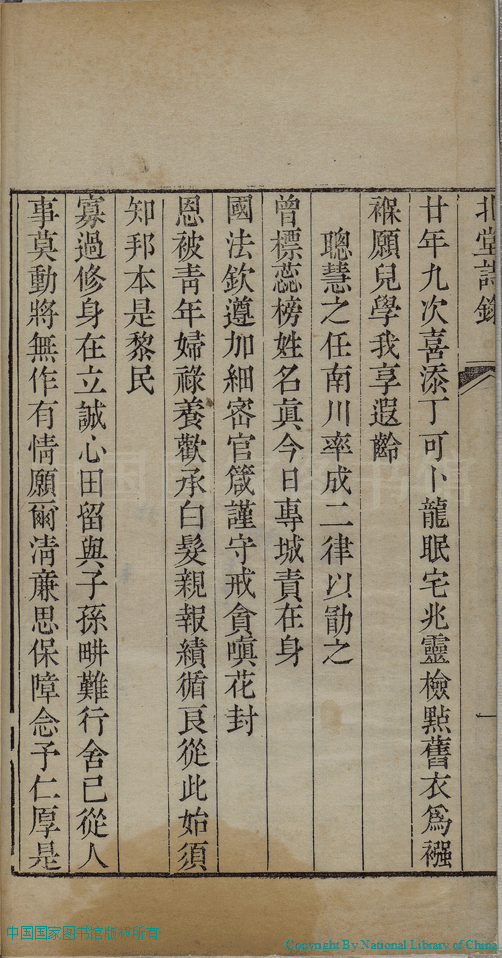 北堂詩錄
一
廿年九次喜添丁可卜龍眠宅兆靈檢㸃舊衣爲襁
褓願兒學我享遐齡
聰慧之任南川率成二律以勖之
曾標蕊榜姓名眞今日專城責在身
國法欽遵加細密官箴謹守戒貪嗔花封
恩被靑年婦祿養歡承白髮親報績循良從此始須
知邦本是黎民
寡過修身在立誠心田留與子孫畊難行舍已從人
事莫動將無作有情願爾淸亷思保障念予仁厚是
中国国家图书馆版权所有
Copyright By National Library of China